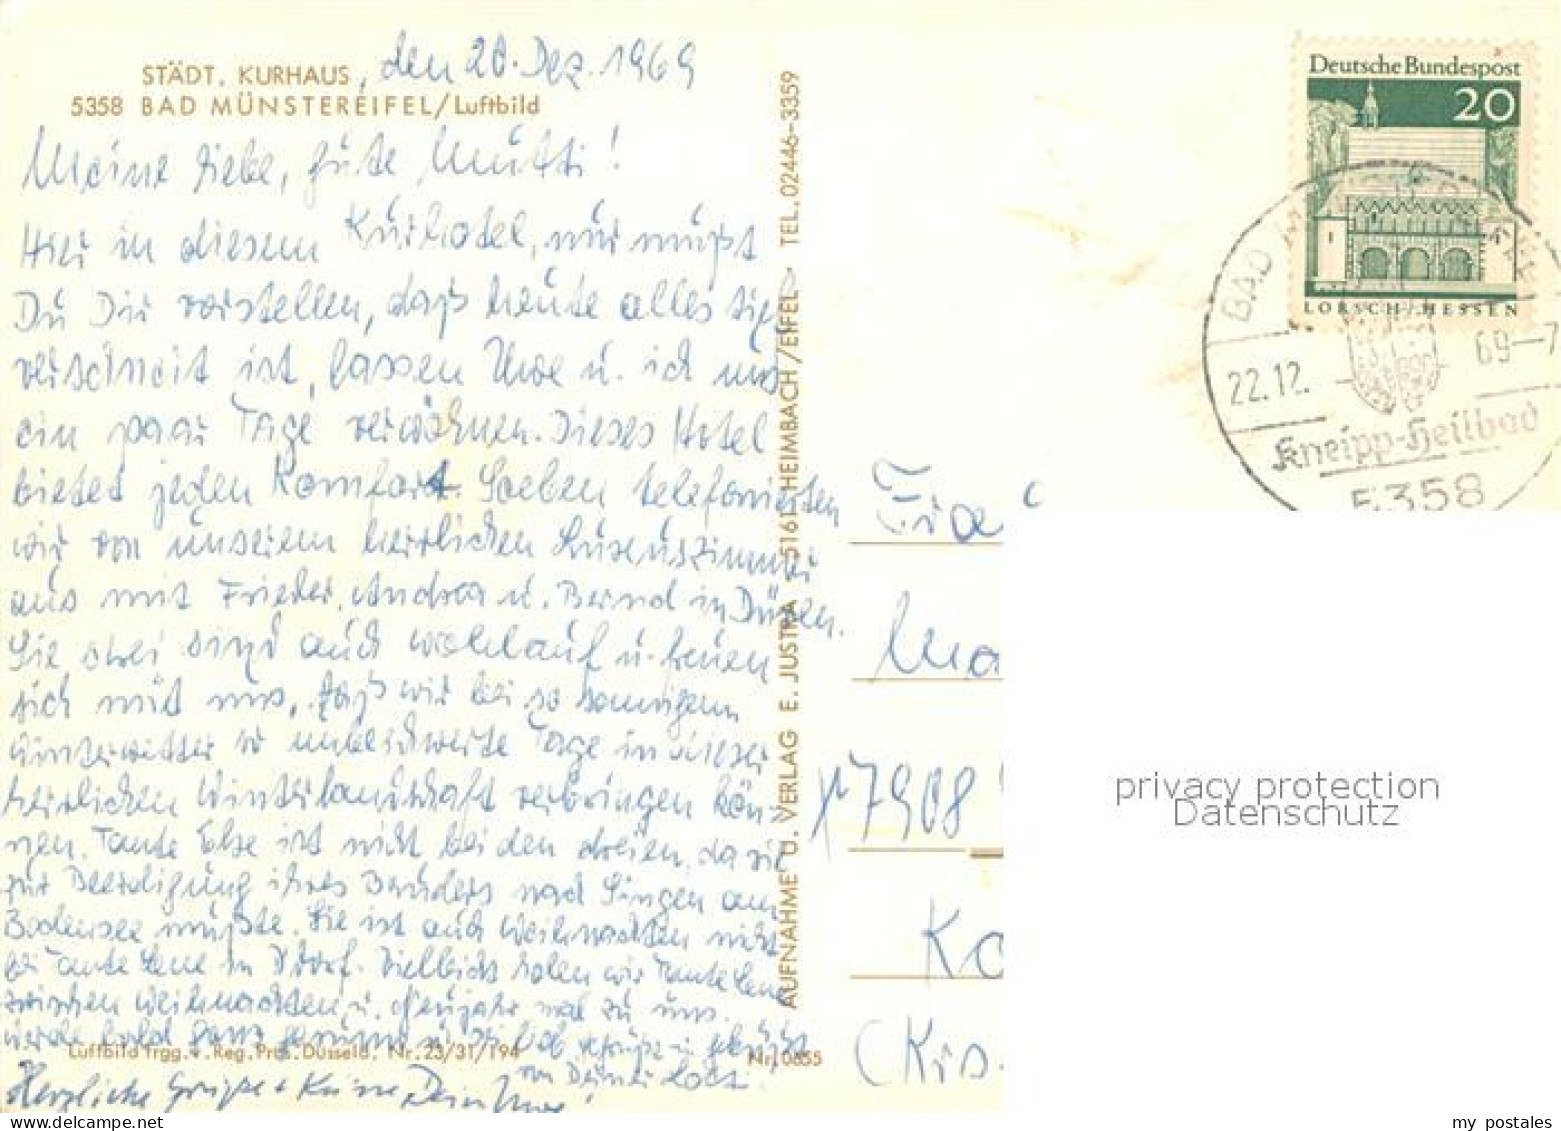 STÄDT. KURHAUS, den 20. Dez. 1969
5358 BAD MÜNSTEREIFEL/Luftbild
Meine liebe, gute Mutti!
Hier in diesem Kurhotel, nur mußt
Du Dir vorstellen, daß heute alles tief
verschneit ist, lassen Uwe u. ich uns
ein paar Tage verwöhnen. Dieses Hotel
bietet jeden Komfort. Soeben telefonierten
wir von unserem herrlichen Luxuszimmer
aus mit Frieder, Andrea u. Bernd in Düren.
Sie drei sind auch wohlauf u. freuen
sich mit uns, daß wir bei so sonnigem
Winterwetter so unbeschwerte Tage in dieser
herrlichen Winterlandschaft verbringen kön-
nen. Tante Else ist nicht bei den dreien, da sie
zur Beerdigung ihres Bruders nach Singen am
Bodensee mußte. Sie ist auch Weihnachten nicht
bei Tante Lene in Ddorf. Vielleicht holen wir Tante Lene
zwischen Weihnachten u. Neujahr mal zu uns.
Werde bald ganz gesund u. sei lieb gegrüßt u. geküßt
von Deiner
Herzliche Grüße + Küsse, Dein Uwe!
Luftbild frgg. v. Reg. Präs. Düsseld. Nr. 23/31/194
Nr. 0655
AUFNAHME U. VERLAG E. JUSTRA 5161 HEIMBACH/EIFEL TEL. 02446-3359
Deutsche Bundespost
20
LORSCH/HESSEN
BAD MÜNSTEREIFEL
22.12. 69-7
Kneipp-Heilbad
5358
Frau
Ma
7908
Ko
(Krs.
privacy protection
Datenschutz
my postales